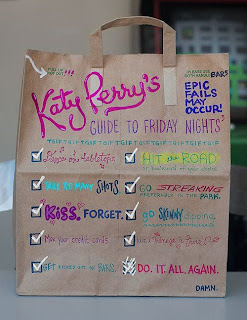 PLEASE USE
BOTH HANDLEBARS
Katy Perry's
EPIC
FAILS
MAY
OCCUR!
GUIDE TO FRIDAY NIGHTS
TGIF TGIF TGIF TGIF TGIF TGIF
HIT the ROAD
TAKE TOO MANY SHOTS
GO STREAKING
PREFERABLY IN THE PARK.
KISS. FORGET.
GO SKINNY dipping
Max your credit cards
GET KICKED OUT OF BARS.
DO. IT. ALL. AGAIN.
DAMN.